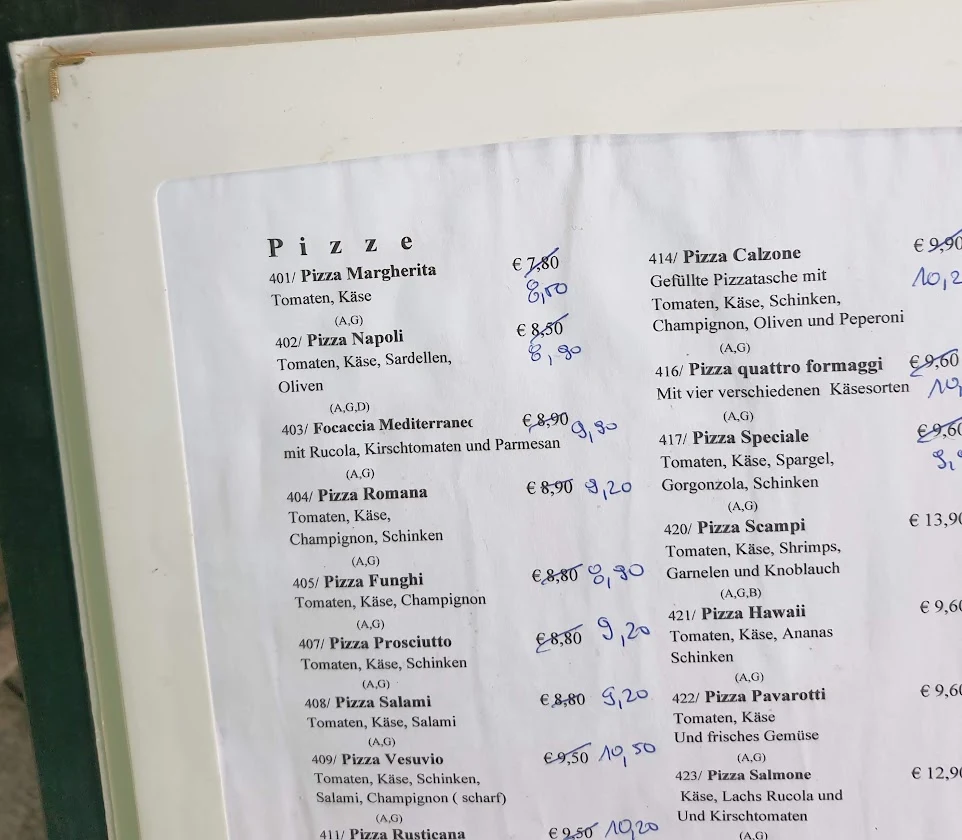 Pizze
401/ Pizza Margherita € 7,80
8,50
Tomaten, Käse
(A,G)
402/ Pizza Napoli € 8,50
8,90
Tomaten, Käse, Sardellen,
Oliven
(A,G,D)
403/ Focaccia Mediterranec € 8,90 9,90
mit Rucola, Kirschtomaten und Parmesan
(A,G)
404/ Pizza Romana € 8,90 9,20
Tomaten, Käse,
Champignon, Schinken
(A,G)
405/ Pizza Funghi € 8,80 8,90
Tomaten, Käse, Champignon
(A,G)
407/ Pizza Prosciutto € 8,80 9,20
Tomaten, Käse, Schinken
(A,G)
408/ Pizza Salami € 8,80 9,20
Tomaten, Käse, Salami
(A,G)
409/ Pizza Vesuvio € 9,50 10,50
Tomaten, Käse, Schinken,
Salami, Champignon ( scharf)
(A,G)
411/ Pizza Rusticana € 9,50 10,20
414/ Pizza Calzone € 9,90
10,2
Gefüllte Pizzatasche mit
Tomaten, Käse, Schinken,
Champignon, Oliven und Peperoni
(A,G)
416/ Pizza quattro formaggi € 9,60
10,
Mit vier verschiedenen Käsesorten
(A,G)
417/ Pizza Speciale € 9,60
9,
Tomaten, Käse, Spargel,
Gorgonzola, Schinken
(A,G)
420/ Pizza Scampi € 13,90
Tomaten, Käse, Shrimps,
Garnelen und Knoblauch
(A,G,B)
421/ Pizza Hawaii € 9,60
Tomaten, Käse, Ananas
Schinken
(A,G)
422/ Pizza Pavarotti € 9,60
Tomaten, Käse
Und frisches Gemüse
(A,G)
423/ Pizza Salmone € 12,90
Käse, Lachs Rucola und
Und Kirschtomaten
(A,G)